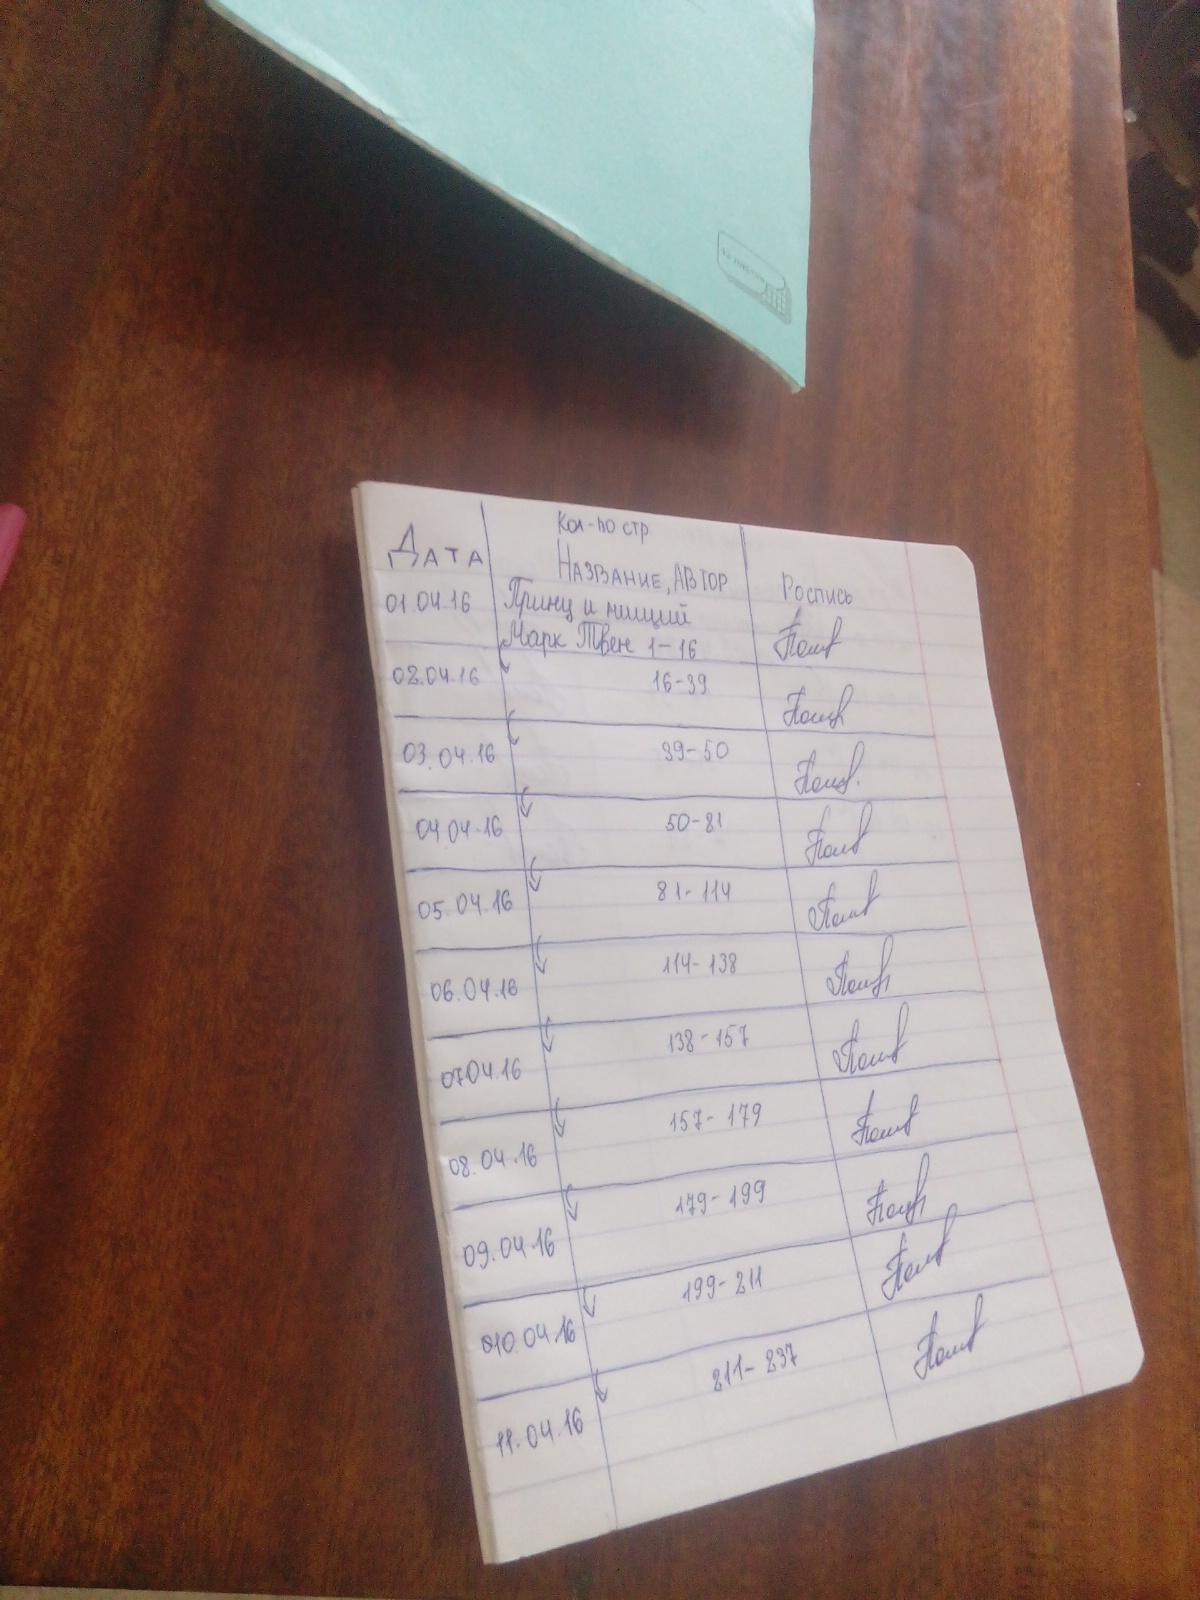 Кол-во стр
Дата Название, автор Роспись
01.04.16 Принц и нищий
Марк Твен 1-16
02.04.16 16-39
03.04.16 39-50
04.04.16 50-81
05.04.16 81-114
06.04.16 114-138
07.04.16 138-157
08.04.16 157-179
09.04.16 179-199
10.04.16 199-211
11.04.16 211-237